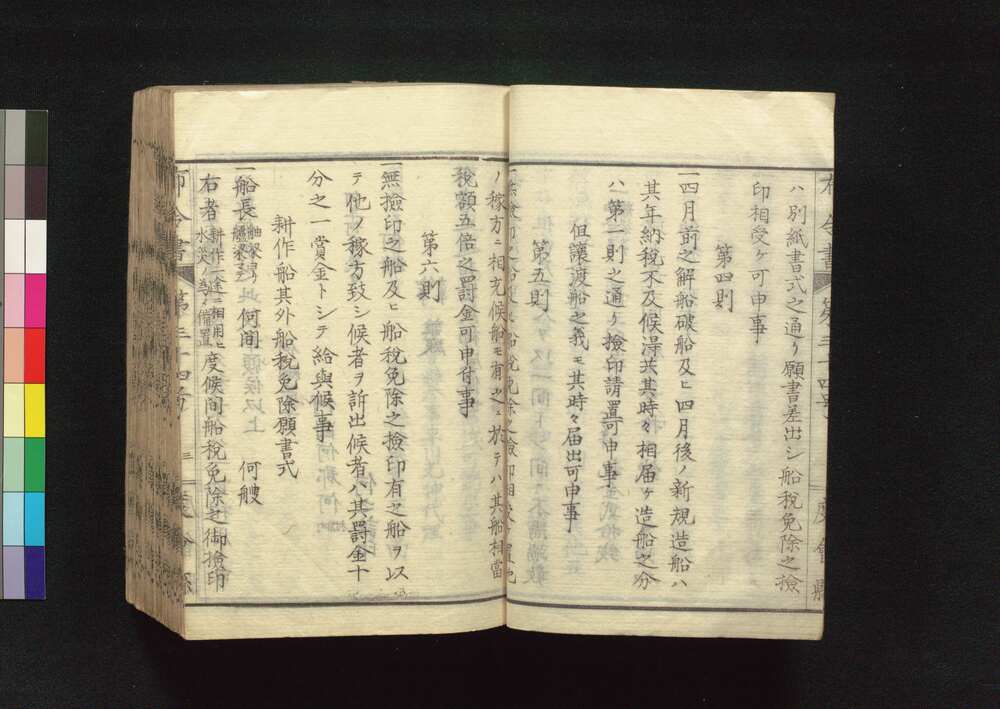 ハ別紙書式之通リ願書差出シ船税免除之撿
印相受ケ可申事
第四則
一四月前之解船破船及ヒ四月後ノ新規造船ハ
其年納税不及候得共其時々相届ケ造船之分
ハ第一則之通リ撿印請置可申事
但讓渡船之義モ其時々届出可申事
第五則
ノ稼方ニ相充候船モ有之ニ於テハ其船相當
税額五倍之罰金可申付事
第六則
一無撿印之船及ヒ船税免除之撿印有之船ヲ以
テ他ノ稼方致シ候者ヲ訴出候者ハ其罰金十
分之一賞金トシテ給與候事
耕作船其外船税免除願書式
一船長 何間 何艘
右者耕作一途ニ相用ヒ
水災ノ為メ備置
度候間船税免除之御撿印
布令書
第三十四号
三
度會縣